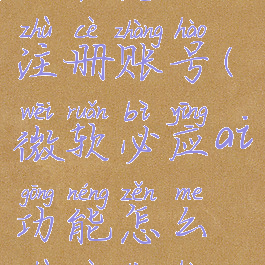 zhù cè zhàng hào
注册账号(
wēi ruǎn bì yīng
微软必应ai
gōng néng zěn me
功能怎么